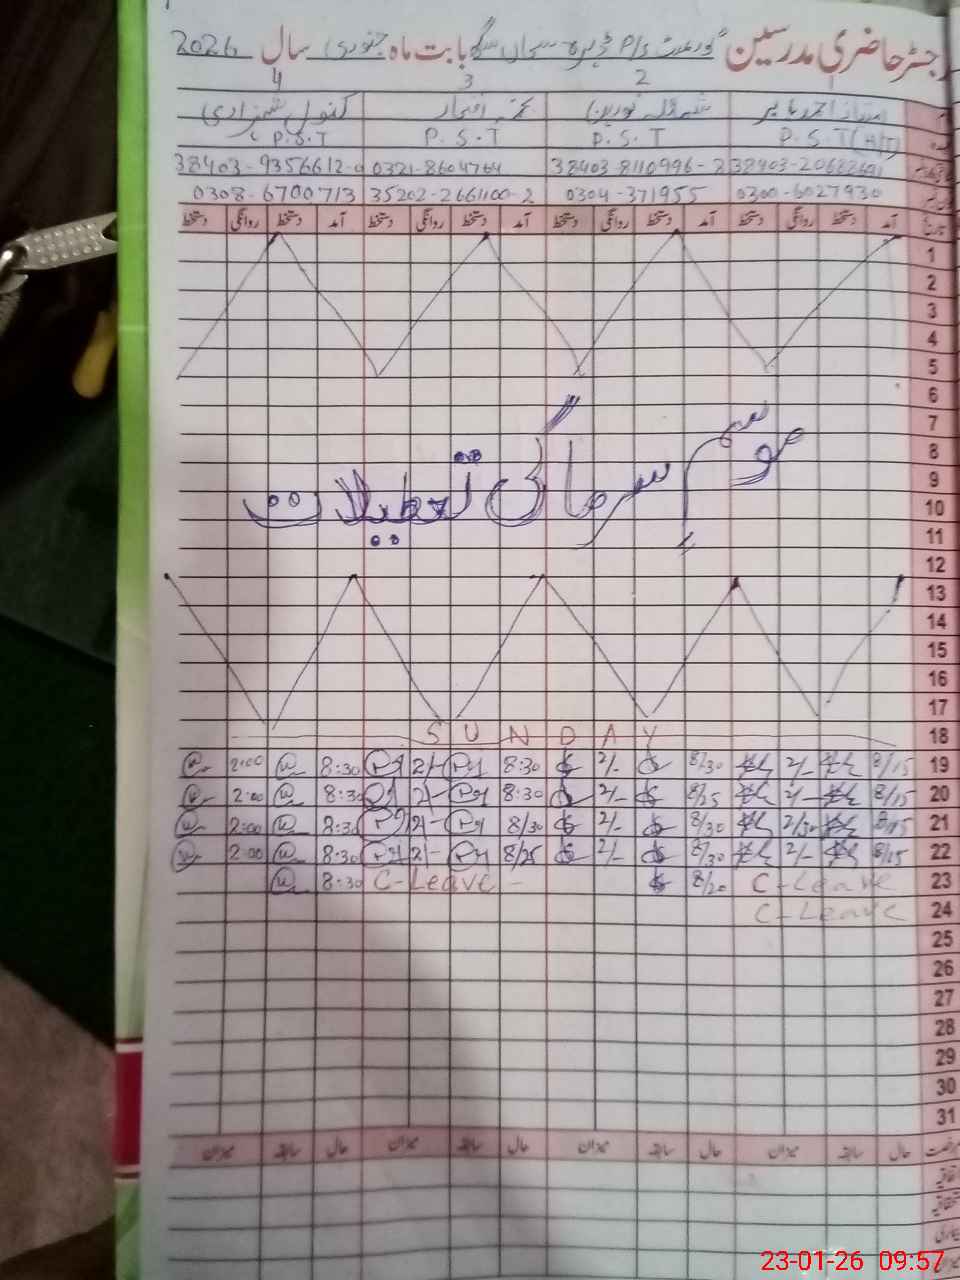 رجسٹر حاضری مدرسین گورنمنٹ P/S ڈیرہ سجاں سنگھ بابت ماہ جنوری سال 2026
1 2 3 4
شمائلہ نورین کنول شہزادی
P.S.T (H/T) P.S.T P.S.T P.S.T
38403-8110996-2 0321-8604764
0300-6027930 0304-371955 35202-2661100-2 0308-6700713
تاریخ آمد دستخط روانگی دستخط آمد دستخط روانگی دستخط آمد دستخط روانگی دستخط آمد دستخط روانگی دستخط
1
2
3
4
5
6
7
8
موسم سرما کی تعطیلات
9
10
11
12
13
14
15
16
17
18 SUNDAY
19 8/15 2/- 8/30 2/- 8:30 2/- 8:30 2:00
20 8/15 2/- 8/25 2/- 8:30 2/- 8:30 2:00
21 8/15 2/30 8/30 2/- 8/30 2/- 8:30 2:00
22 8/15 2/- 8/30 2/- 8/25 2/- 8:30 2:00
23 C-Leave 8/20 C-Leave - 8:30
24 C-Leave
25
26
27
28
29
30
31
حال سابقہ میزان حال سابقہ میزان حال سابقہ میزان حال سابقہ میزان
اتفاقیہ
بیماری
میزان
23-01-26 09:57